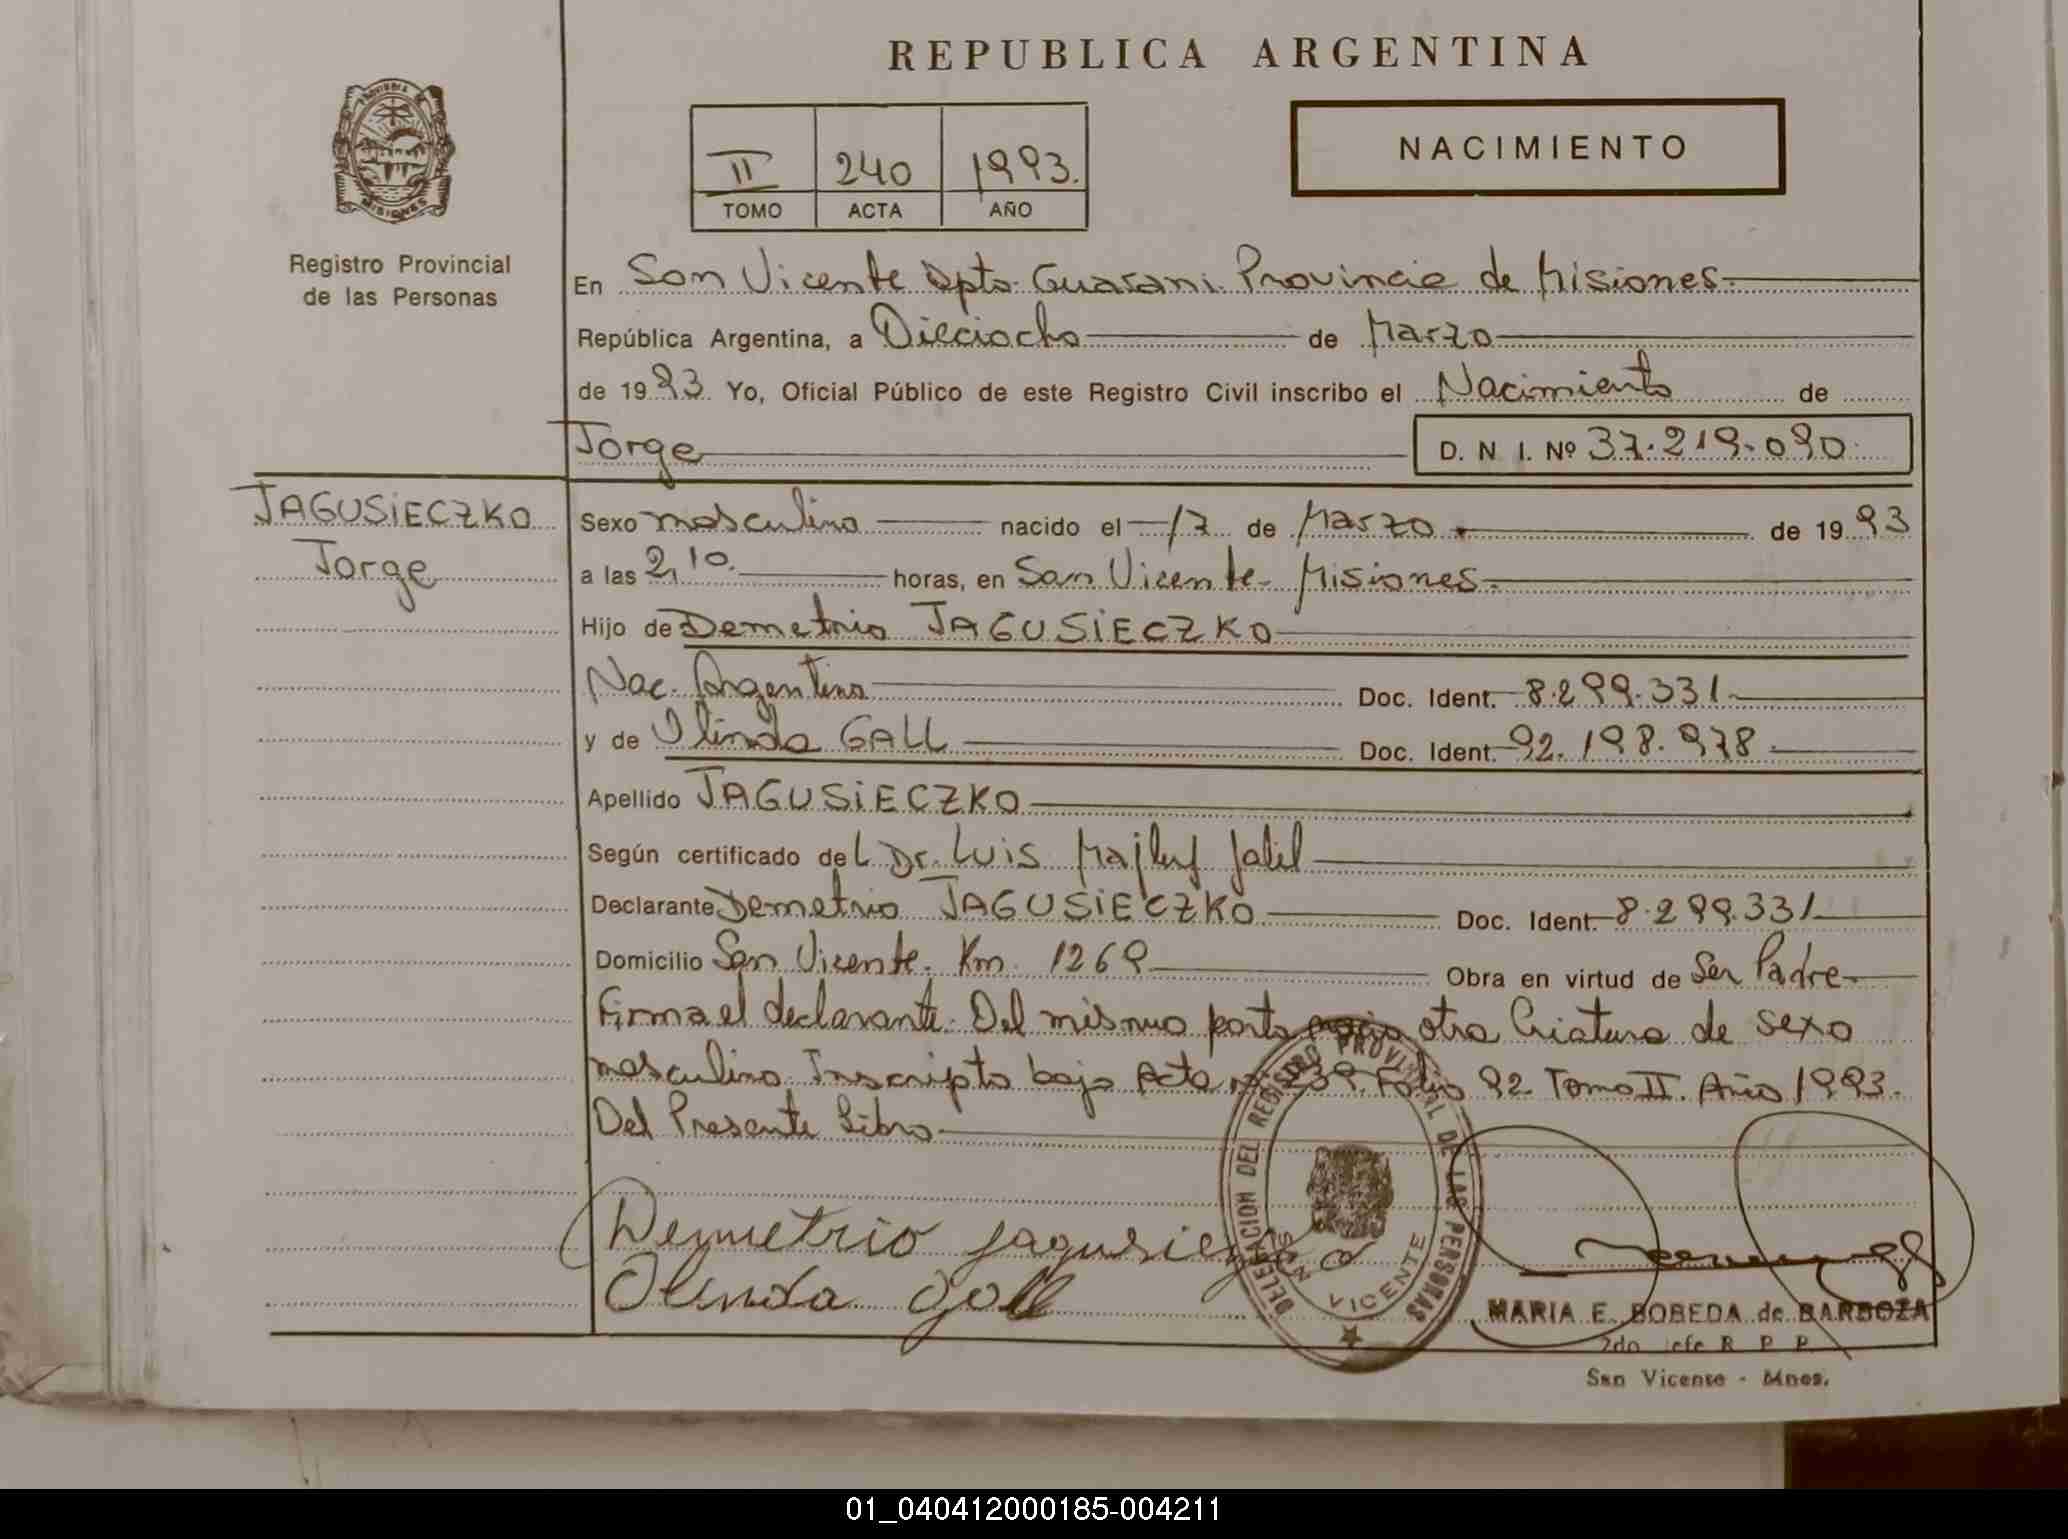 REPUBLICA ARGENTINA
PROVINCIA DE
MISIONES
Registro Provincial
de las Personas
II 240 1993.
TOMO ACTA AÑO
NACIMIENTO
En San Vicente Dpto. Guarani. Provincia de Misiones
República Argentina, a Dieciocho de Marzo
de 1993. Yo, Oficial Público de este Registro Civil inscribo el Nacimiento de
Jorge D. N I. Nº 37.219.090
JAGUSiECZKO
Jorge
Sexo masculino nacido el 17 de Marzo de 1993
a las 2,10. horas, en San Vicente - Misiones.
Hijo de Demetrio JAGUSiECZKO
Nac. Argentina Doc. Ident. 8.299.331
y de Olinda GALL Doc. Ident. 92.198.978
Apellido JAGUSiECZKO
Según certificado del Dr. Luis
Declarante Demetrio JAGUSiECZKO Doc. Ident. 8.299.331
Domicilio San Vicente. Km. 1269 Obra en virtud de Ser Padre
Firma el declarante. Del mismo parto nacio otra Criatura de sexo
masculino Inscripto bajo Acta nº 239. Folio 92. Tomo II. Año 1993.
Del Presente Libro
Demetrio jagusieczko
Olinda Gall
DELEGACION DEL REGISTRO PROVINCIAL DE LAS PERSONAS
SAN VICENTE
MARIA E. BOBEDA de BARBOZA
2do jefe R P P
San Vicente - Mnes.
01_040412000185-004211